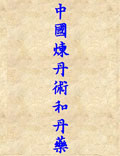 中國煉丹術和丹藥